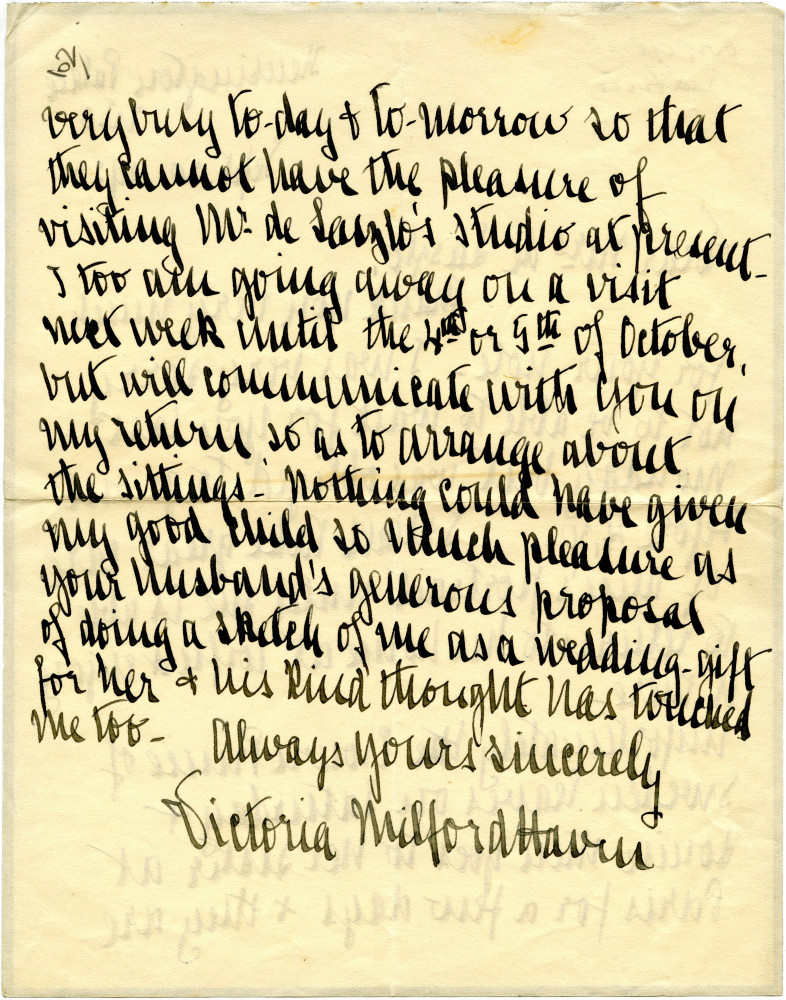 62
very busy to-day & to-morrow so that
they cannot have the pleasure of
visiting Mr. de Laszlo's studio at present-
I too am going away on a visit
next week until the 4th or 5th of October,
but will communicate with you on
my return, so as to arrange about
the sittings.- Nothing could have given
my good child so much pleasure as
your husband's generous proposal
of doing a sketch of me as a wedding-gift
for her & his kind thought has touched
me too- Always yours sincerely
Victoria Milford Haven